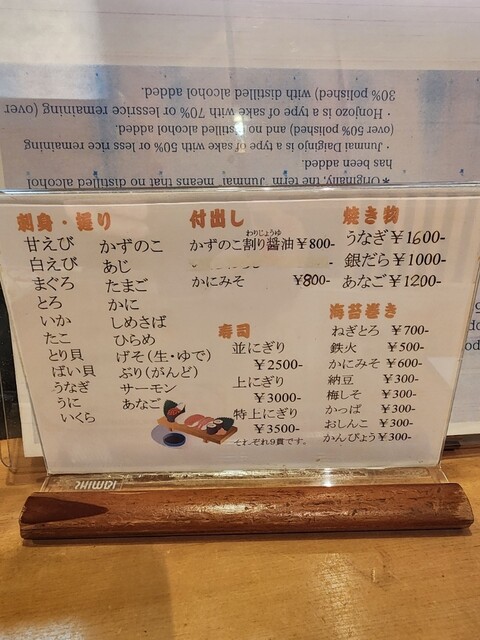 30% polished) with distilled alcohol added.
・Honjozo is a type of sake with 70% or lessrice remaining (over
(over 50% polished) and no distilled alcohol added.
・Junmai Daiginjo is a type of sake with 50% or less rice remaining
has been added.
*Originally, the term "Junmai" means that no distilled alcohol
刺身・握り
甘えび かずのこ
白えび あじ
まぐろ たまご
とろ かに
いか しめさば
たこ ひらめ
とり貝 げそ(生・ゆで)
ばい貝 ぶり(がんど)
うなぎ サーモン
うに あなご
いくら
付出し
わりじょうゆ
かずのこ割り醤油 ¥800-
かにみそ ¥800-
寿司
並にぎり
¥2500-
上にぎり
¥3000-
特上にぎり
¥3500-
それぞれ9貫です。
焼き物
うなぎ¥1600-
銀だら¥1000-
あなご¥1200-
海苔巻き
ねぎとろ ¥700-
鉄火 ¥500-
かにみそ ¥600-
納豆 ¥300-
梅しそ ¥300-
かっぱ ¥300-
おしんこ ¥300-
かんぴょう¥300-